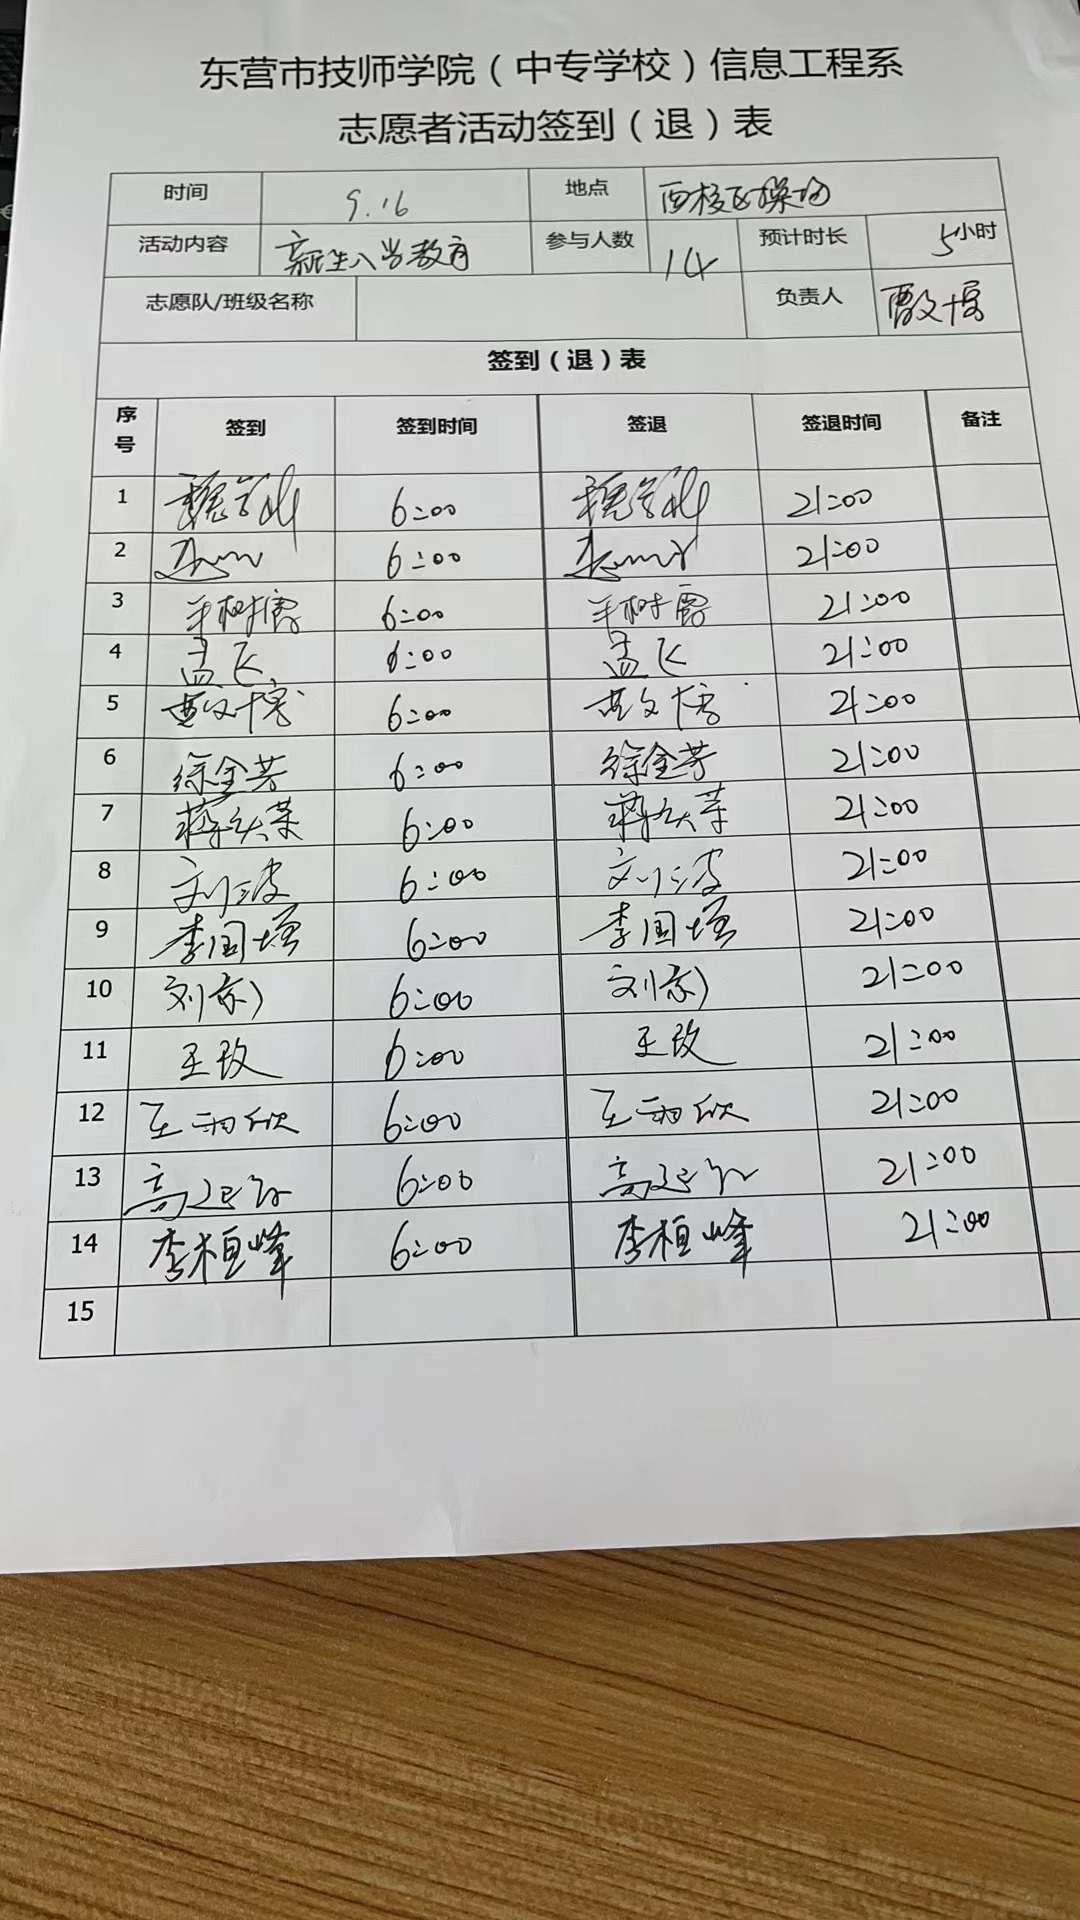 东营市技师学院（中专学校）信息工程系
志愿者活动签到（退）表
时间 9.16 地点 西校区操场
活动内容 新生入学教育 参与人数 14 预计时长 5小时
志愿队/班级名称 负责人
签到（退）表
序号 签到 签到时间 签退 签退时间 备注
1 6:00 21:00
2 6:00 21:00
3 6:00 21:00
4 孟飞 6:00 孟飞 21:00
5 6:00 21:00
6 徐金芳 6:00 徐金芳 21:00
7 6:00 21:00
8 6:00 21:00
9 李国增 6:00 李国增 21:00
10 6:00 21:00
11 王玫 6:00 王玫 21:00
12 王雨欣 6:00 王雨欣 21:00
13 6:00 21:00
14 李桓峰 6:00 李桓峰 21:00
15